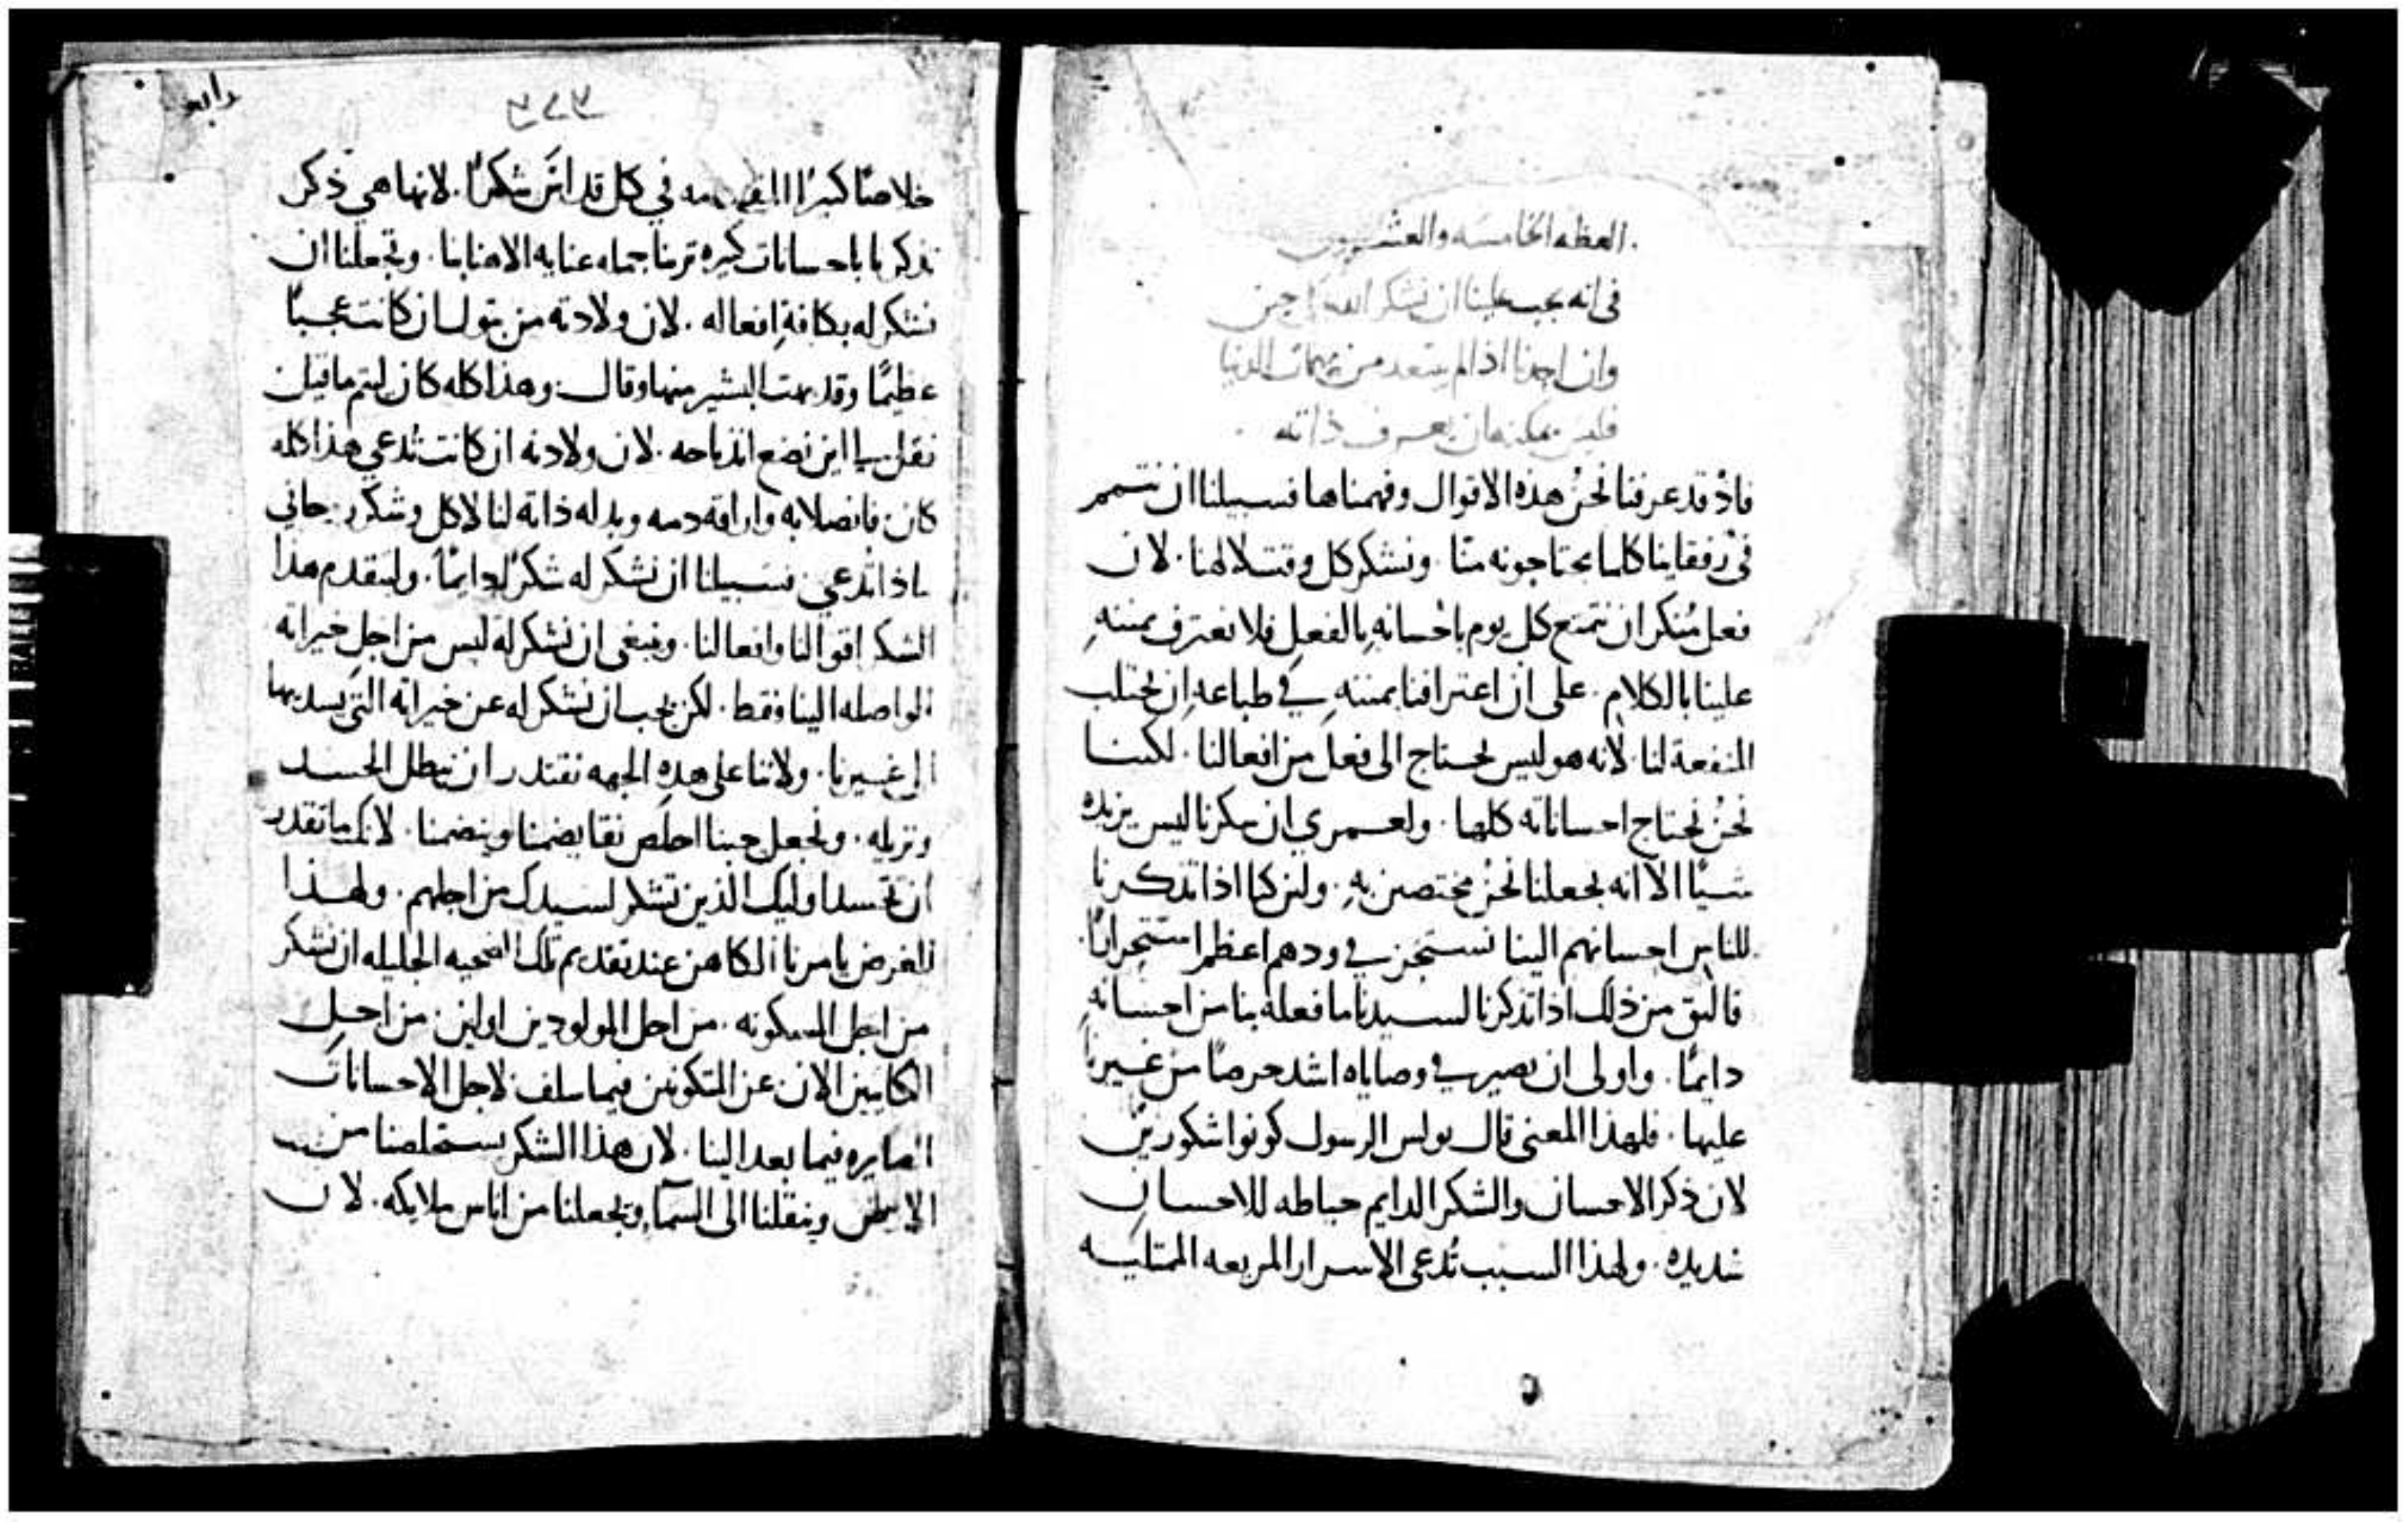 العظه الخامسه والعشرون
في انه يجب علينا ان نشكر الله كل حين
وان احدنا اذا لم يبتعد من مهمات الدنيا
فليس يمكنه ان يعرف ذاته
فاذ قد عرفنا نحن هذه الاقوال وفهمناها فسبيلنا ان نتمم
في رفقاينا كلما يحتاجونه منا . ونشكر كل وقت لالهنا . لان
فعل منكر ان نتمتع كل يوم باحسانه بالفعل فلا نعترف بمننه
علينا بالكلام . على ان اعترافنا بمننه في طباعه ان يجتلب
المنفعة لنا . لانه هو ليس يحتاج الى فعل من افعالنا . لكننا
نحن نحتاج احساناته كلها . ولعمري ان شكرنا ليس يزيده
شيًا الا انه يجعلنا نحن مختصين به . ولين كنا اذا تذكرنا
للناس احسانهم الينا نستجر في ودهم اعظم استجرارًا .
فاليق من ذلك اذا تذكرنا لسيدنا ما فعله بنا من احسانه
دايمًا . واولى ان نصير في وصاياه اشد حرصًا من غيرنا
عليها . فلهذا المعنى قال بولس الرسول كونوا شكورين
لان ذكر الاحسان والشكر الدايم حياطه للاحسان
شديده . ولهذا السبب تُدعى الاسرار المريعه الممتليه
٣٧٣
رابع
خلاصًا كبيرًا المقدمه في كل قداس شكرًا . لانها هي ذكر
تذكرنا باحسانات كثيره ترينا جمله عناية الاهنا بنا . وتجعلنا ان
نشكر له بكافة افعاله . لان ولادته من بتول ان كانت عجبًا
عظيمًا وقد بهت البشير منها وقال : وهذا كله كان ليتم ما قيل
فقل بيا اين نضع انذباحه . لان ولادته ان كانت تُدعي هذا كله
كان فانصلابه واراقة دمه وبذله ذاته لنا لاكل وشكر روحاني
ماذا تدعي فسبيلنا ان نشكر له شكرًا دايمًا . وليتقدم هذا
الشكر اقوالنا وافعالنا . وينبغي ان نشكر له ليس من اجل خيراته
الواصله الينا فقط . لكن يجب ان نشكر له عن خيراته التي يسديها
الى غيرنا . ولاننا على هذه الجهه نقتدر ان نبطل الحسد
ونزيله . ونجعل حبنا اخلص نقا يضمنا وينضمنا . لانك ما تقدر
ان تحسد اوليك الذين تشكر لسيدك من اجلهم . ولهذا
الغرض يامرنا الكاهن عند تقديم تلك الضحيه الجليله ان نشكر
من اجل المسكونه . من اجل المولودين اولين . من اجل
الكاينين الان عن المتكونين فيما سلف لاجل الاحسانات
الصايره فيما بعد الينا . لان هذا الشكر يستخلصنا من
الارض وينقلنا الى السمآ ويجعلنا من اناس ملايكه . لان